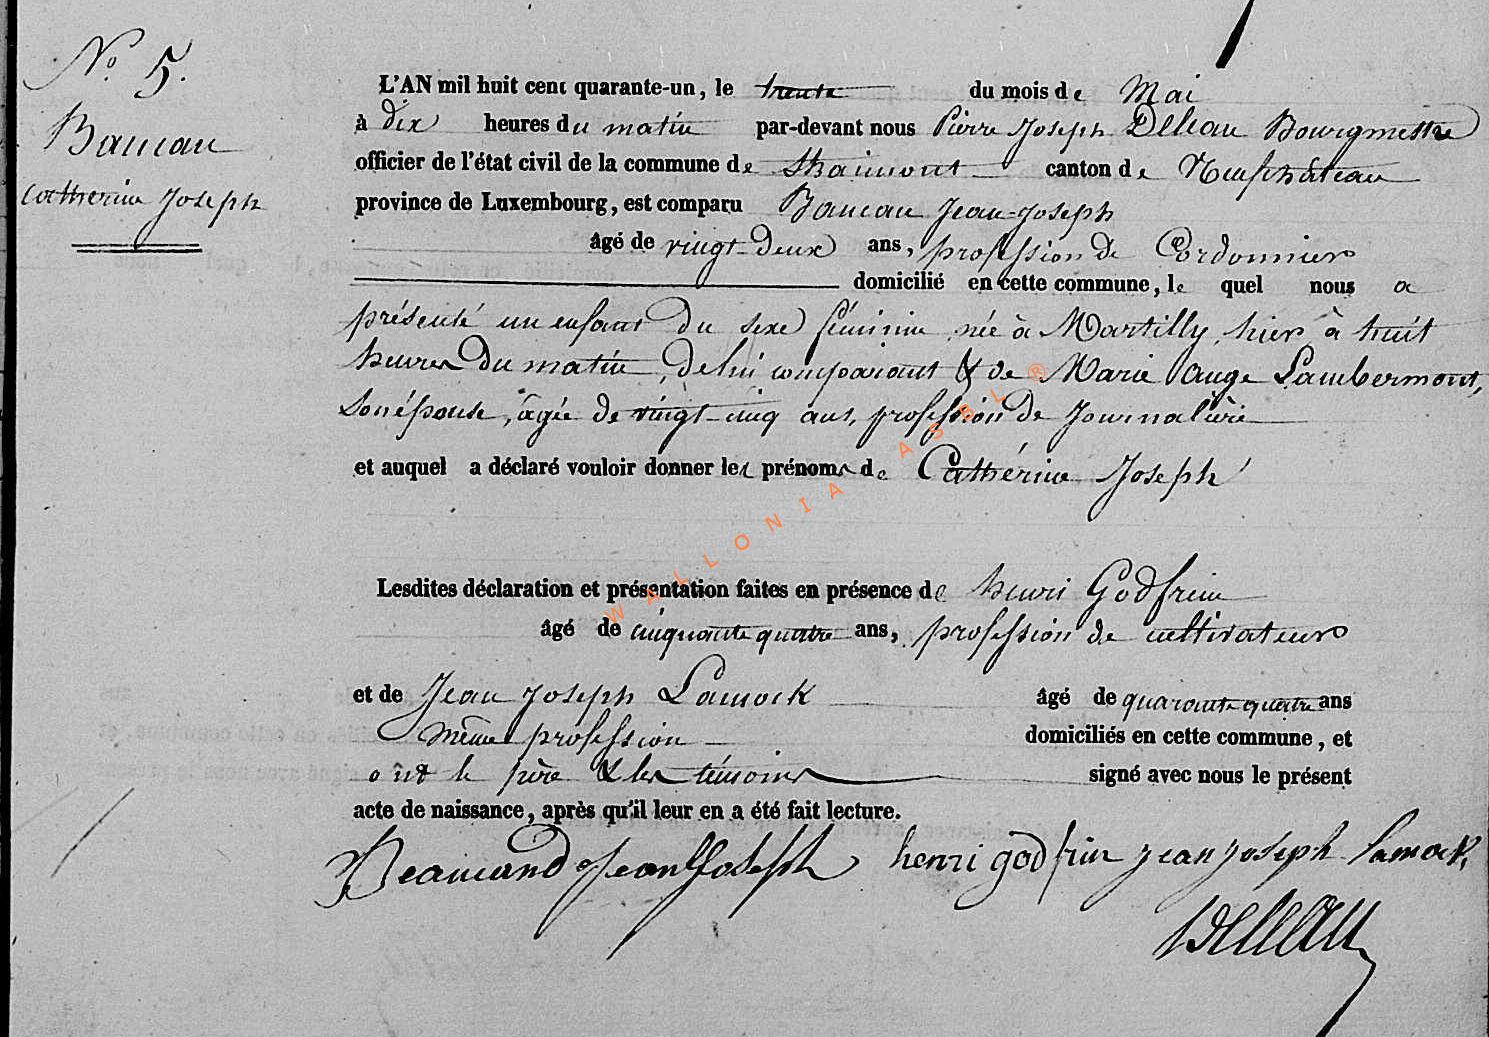 N.o 5.
Bauvau
Catherine Joseph
L'AN mil huit cent quarante-un, le trente du mois de Mai
à dix heures du matin par-devant nous Pierre Joseph Delleau Bourgmestre
officier de l'état civil de la commune de Straimont canton de Neufchâteau
province de Luxembourg, est comparu Bauvau Jean-Joseph
âgé de vingt-deux ans, profession de Cordonnier
domicilié en cette commune, le quel nous a
présenté un enfant du sexe féminin née à Martilly, hier à huit
heures du matin, de lui comparant & de Marie Ange Lambermont,
son épouse, âgée de vingt-cinq ans, profession de Journalière
et auquel a déclaré vouloir donner les prénoms de Cathérine Joseph
Lesdites déclaration et présentation faites en présence de henri Godfrin
âgé de cinquante quatre ans, profession de cultivateur
et de Jean Joseph Lamock âgé de quarante quatre ans
même profession domiciliés en cette commune, et
ont le père & les témoins signé avec nous le présent
acte de naissance, après qu'il leur en a été fait lecture.
Jean Joseph henri godfrin jean joseph lamock
Delleau
WALLONIA ASBL ®